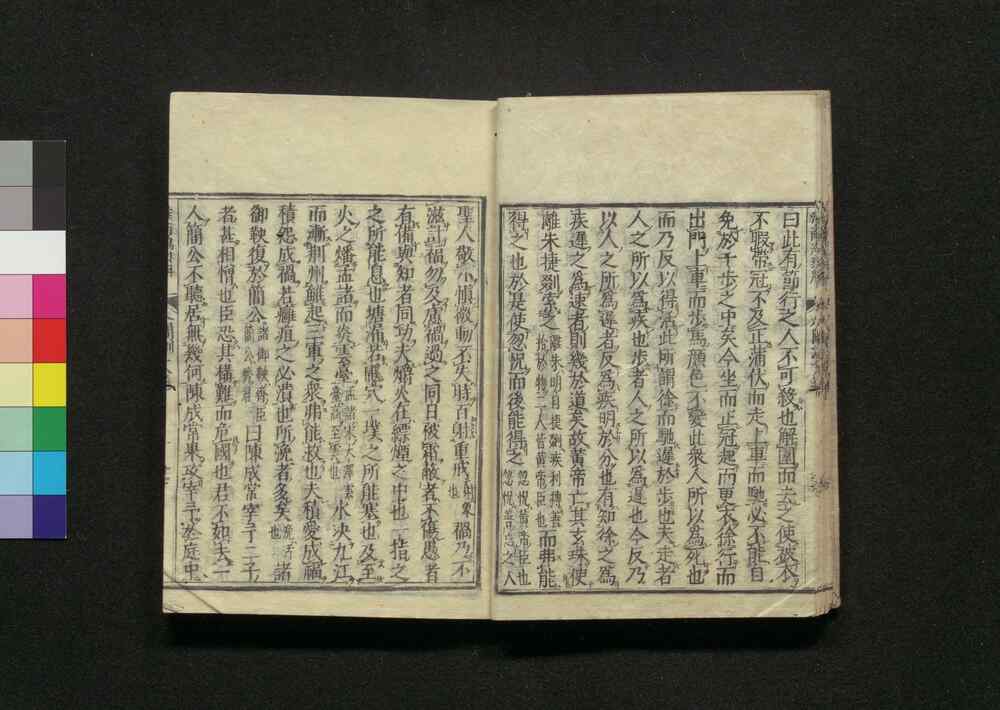 曰此有節行之人不可殺也解圍而去之使被衣
不暇帶冠不及正蒲伏而走上車而馳必不能自
免於千歩之中矣今坐而正冠起而更衣徐行而
出門上車而歩馬顔色不變此衆人所以為死也
而乃反以得活此所謂徐而馳遲於歩也夫走者
人之所以為疾也歩者人之所以為遲也今反乃
以人之所為遲者反為疾明於分也有知徐之為
疾遲之為速者則幾於道矣故黄帝亡其玄珠使
離朱捷剟索之離朱明目捷剟疾利搏善拾於物二人皆黄帝臣也而弗能
得之也於是使忽怳而後能得之忽怳黄帝臣也忽怳善忘之人
聖人敬小慎微動不失時百射重戒射象也禍乃不
滋計福勿及慮禍過之同日被霜蔽者不傷愚者
有備與知者同功夫爝火在縹煙之中也一指之
所能息也塘漏若鼷穴一墣之所能塞也及至
火之燔孟諸而炎雲臺孟諸宋大澤雲臺高至雲也水決九江
而漸荊州雖起三軍之衆弗能救也夫積愛成福
積怨成禍若癰疽之必潰也所浼者多矣浼汚也諸
御鞅復於簡公諸御鞅齊臣簡公齊君曰陳成常宰予二子
者甚相憎也臣恐其構難而危國也君不如去一
人簡公不聽居無幾何陳成常果攻宰予於庭中